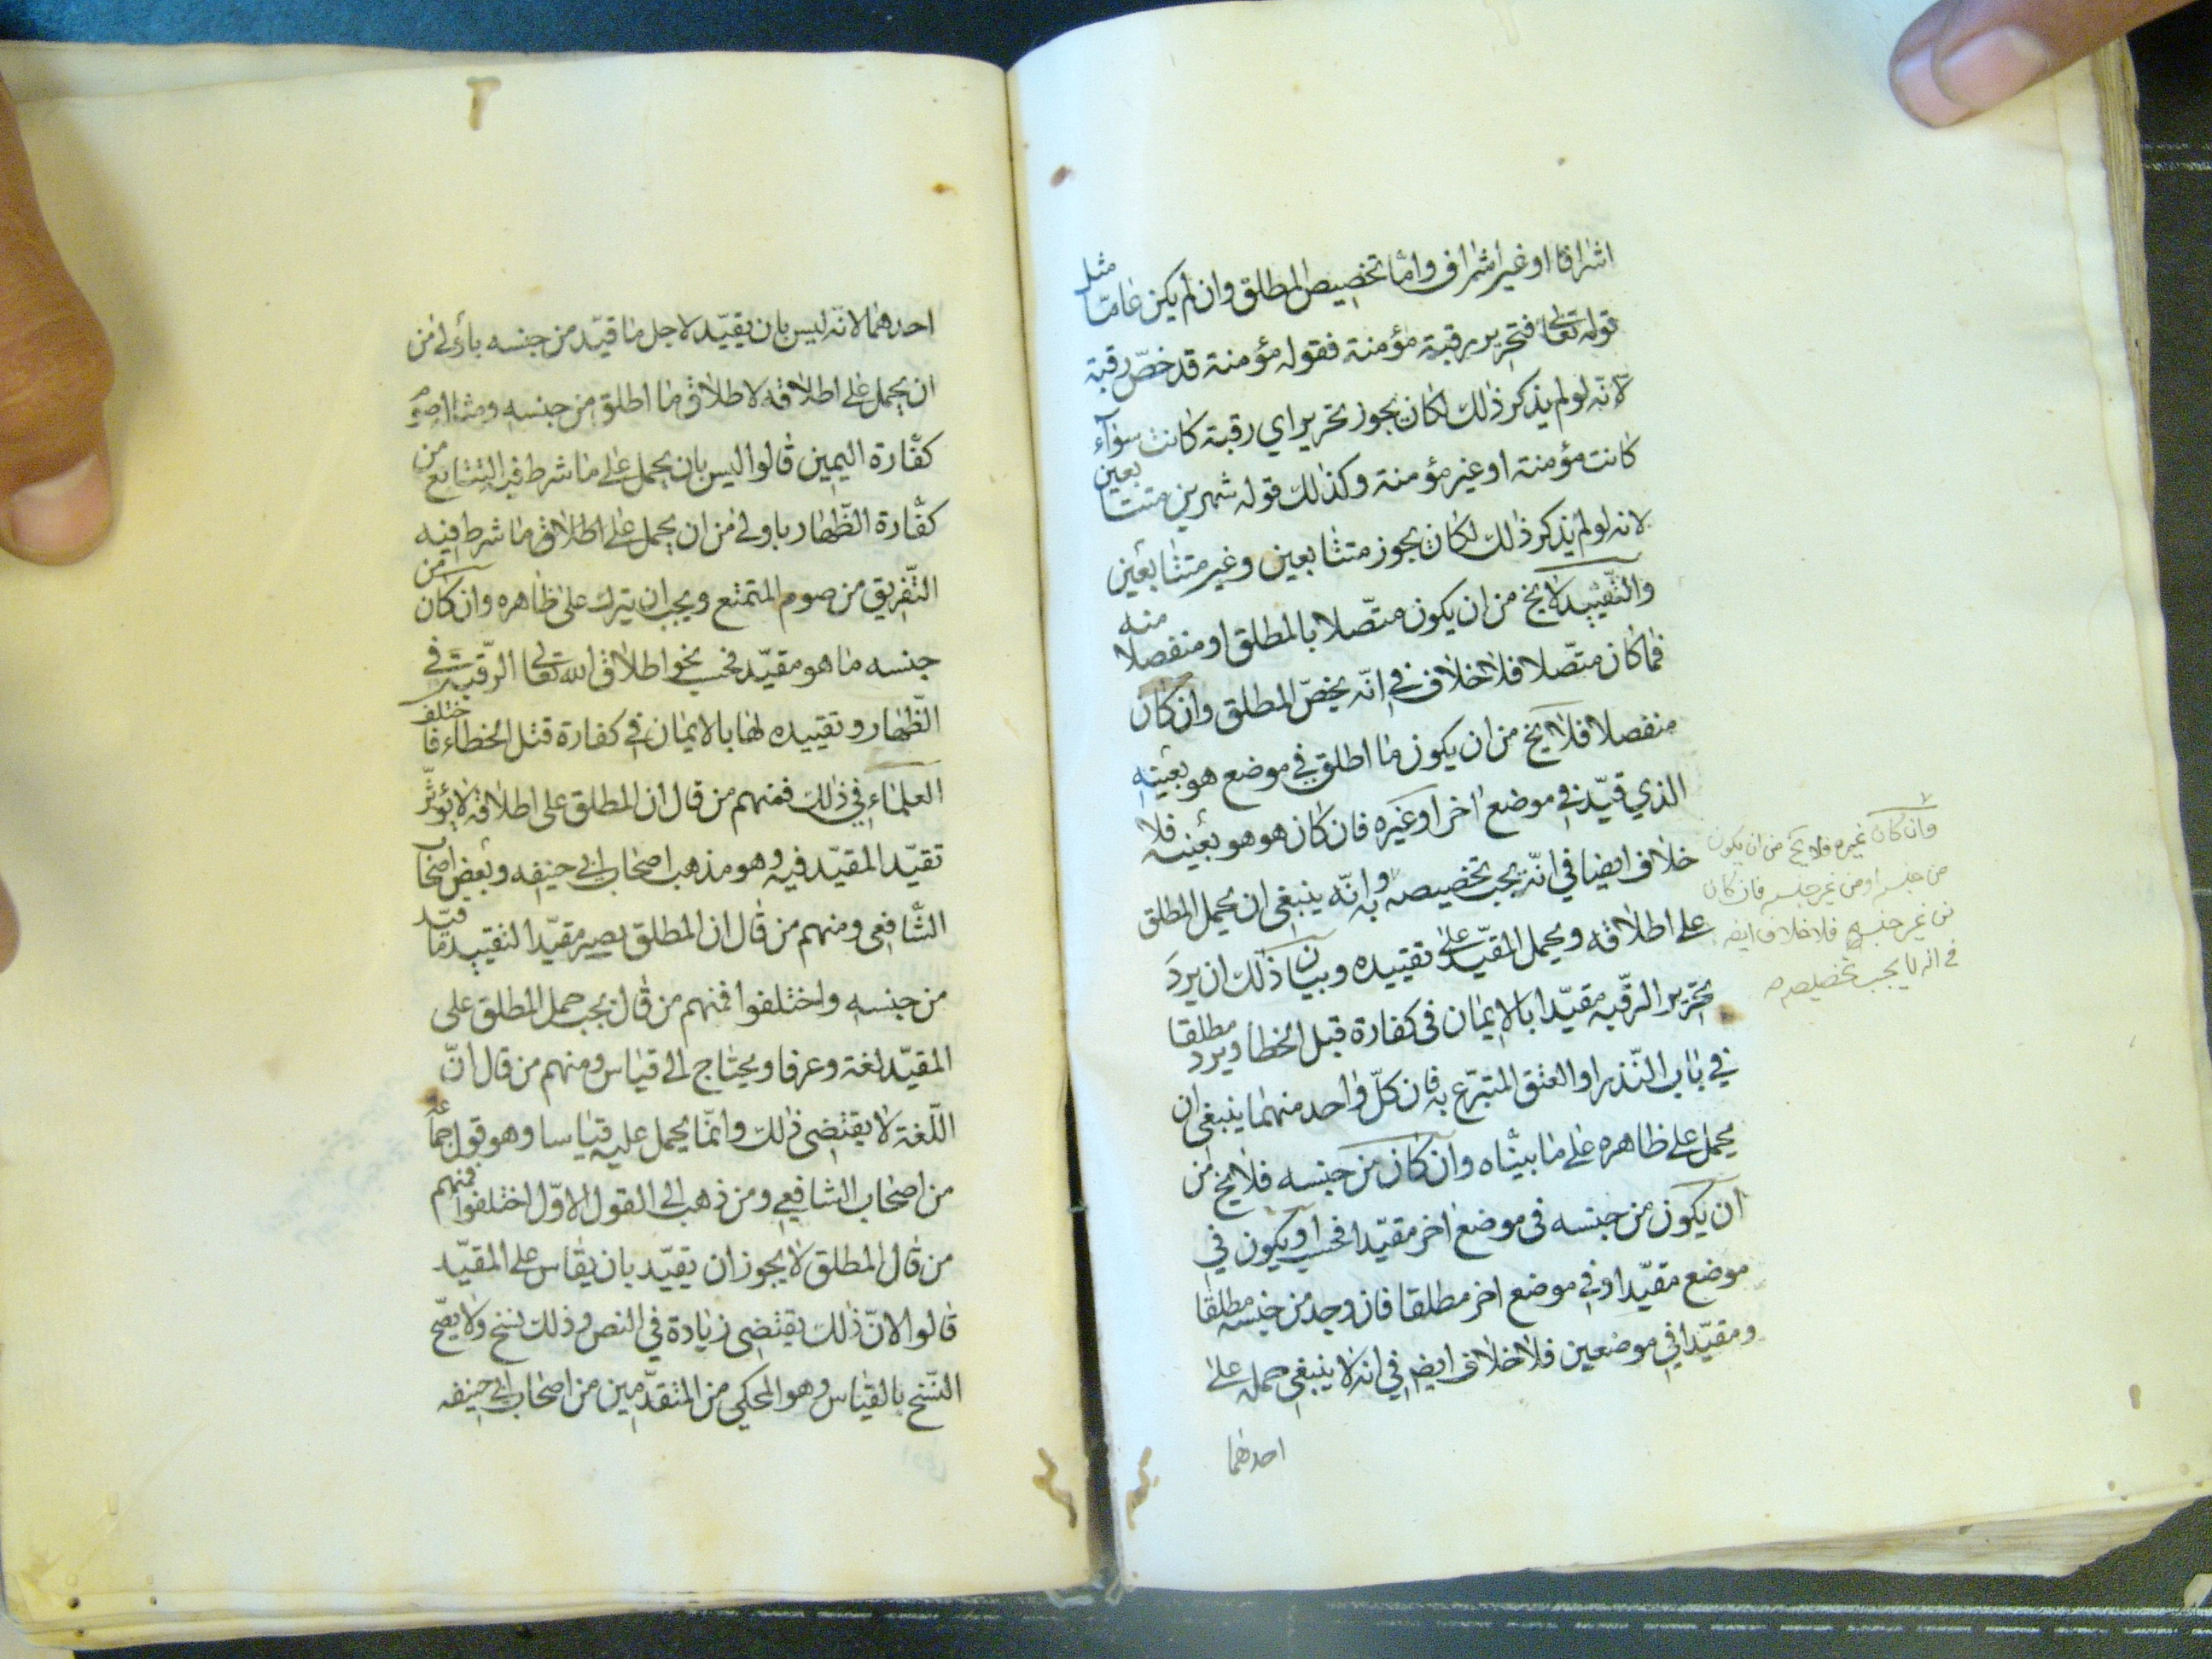 اشرافا او غير اشراف واما تخصيص المطلق وان لم يكن عامّا مثل
قوله تعالى فتحرير رقبة مؤمنة فقوله مؤمنة قد خصّ رقبة
لانّه لو لم يذكر ذلك لكان يجوز تحرير اي رقبة كانت سوآء
كانت مؤمنة او غير مؤمنة وكذلك قوله شهرين متتابعين
لانه لو لم يذكر ذلك لكان يجوز متتابعين وغير متتابعين
والتّقييد لا يخ من ان يكون متّصلا بالمطلق او منفصلا منه
فما كان متّصلا فلا خلاف في انّه يخصّ المطلق وان كان
منفصلا فلا يخ من ان يكون ما اطلق في موضع هو بعينه
الذي قيّد في موضع اخر او غيره فان كان هو هو بعينه فلا
خلاف ايضا في انّه يجب تخصيصه به وانّه ينبغي ان يحمل المطلق
على اطلاقه ويحمل المقيّد على تقييده وبيان ذلك ان يرد
تحرير الرّقبه مقيّدا بالايمان في كفارة قبل الخطأ ويرد مطلقا
في باب النّذر او العتق المتبرّع به فان كلّ واحد منهما ينبغي ان
يحمل على ظاهره على ما بيّنّاه وان كان من جنسه فلا يخ من
ان يكون من جنسه في موضع اخر مقيّدا فحسب او يكون في
موضع مقيّدا وفي موضع اخر مطلقا فان وجد من جنسه مطلقا
ومقيّدا في موضعين فلا خلاف ايض في انه لا ينبغي حمله على
احدهما
وان كان غيره فلا يخ من ان يكون
من جنسه او من غير جنسه فان كان
من غير جنسه فلا خلاف ايضا
في انه لا يجب تخصيصه
احدهما لانّه ليس بان يقيّد لاجل ما قيّد من جنسه باولى من
ان يحمل على اطلاقه لاطلاق ما اطلق من جنسه ومثال صوم
كفّارة اليمين قالوا ليس بان يحمل على ما شرط فيه التتابع من
كفّارة الظّهار باولى من ان يحمل على اطلاق ما شرط فيه
التّفريق من صوم المتمتع ويجب ان يترك على ظاهره وان كان من
جنسه ما هو مقيّد فحسب نحو اطلاق الله تعالى الرّقبة في
الظّهار وتقييده لها بالايمان في كفارة قتل الخطاء فاختلف
العلماء في ذلك فمنهم من قال ان المطلق على اطلاقه لا يؤثّر
تقيّد المقيّد فيه وهو مذهب اصحاب ابي حنيفه وبعض اصحاب
الشّافعي ومنهم من قال ان المطلق يصير مقيّدا لتقييد ما قيّد
من جنسه واختلفوا فمنهم من قال يجب حمل المطلق على
المقيّد لغة وعرفا ويحتاج الى قياس ومنهم من قال انّ
اللّغة لا يقتضي ذلك وانّما يحمل عليه قياسا وهو قول جماعه
من اصحاب الشافعي ومن ذهب الى القول الاوّل اختلفوا فمنهم
من قال المطلق لا يجوز ان يقيّد بان يقاس على المقيّد
قالوا لانّ ذلك يقتضي زيادة في النص وذلك نسخ ولا يصّح
النّسخ بالقياس وهو المحكي من المتقدّمين من اصحاب ابي حنيفه